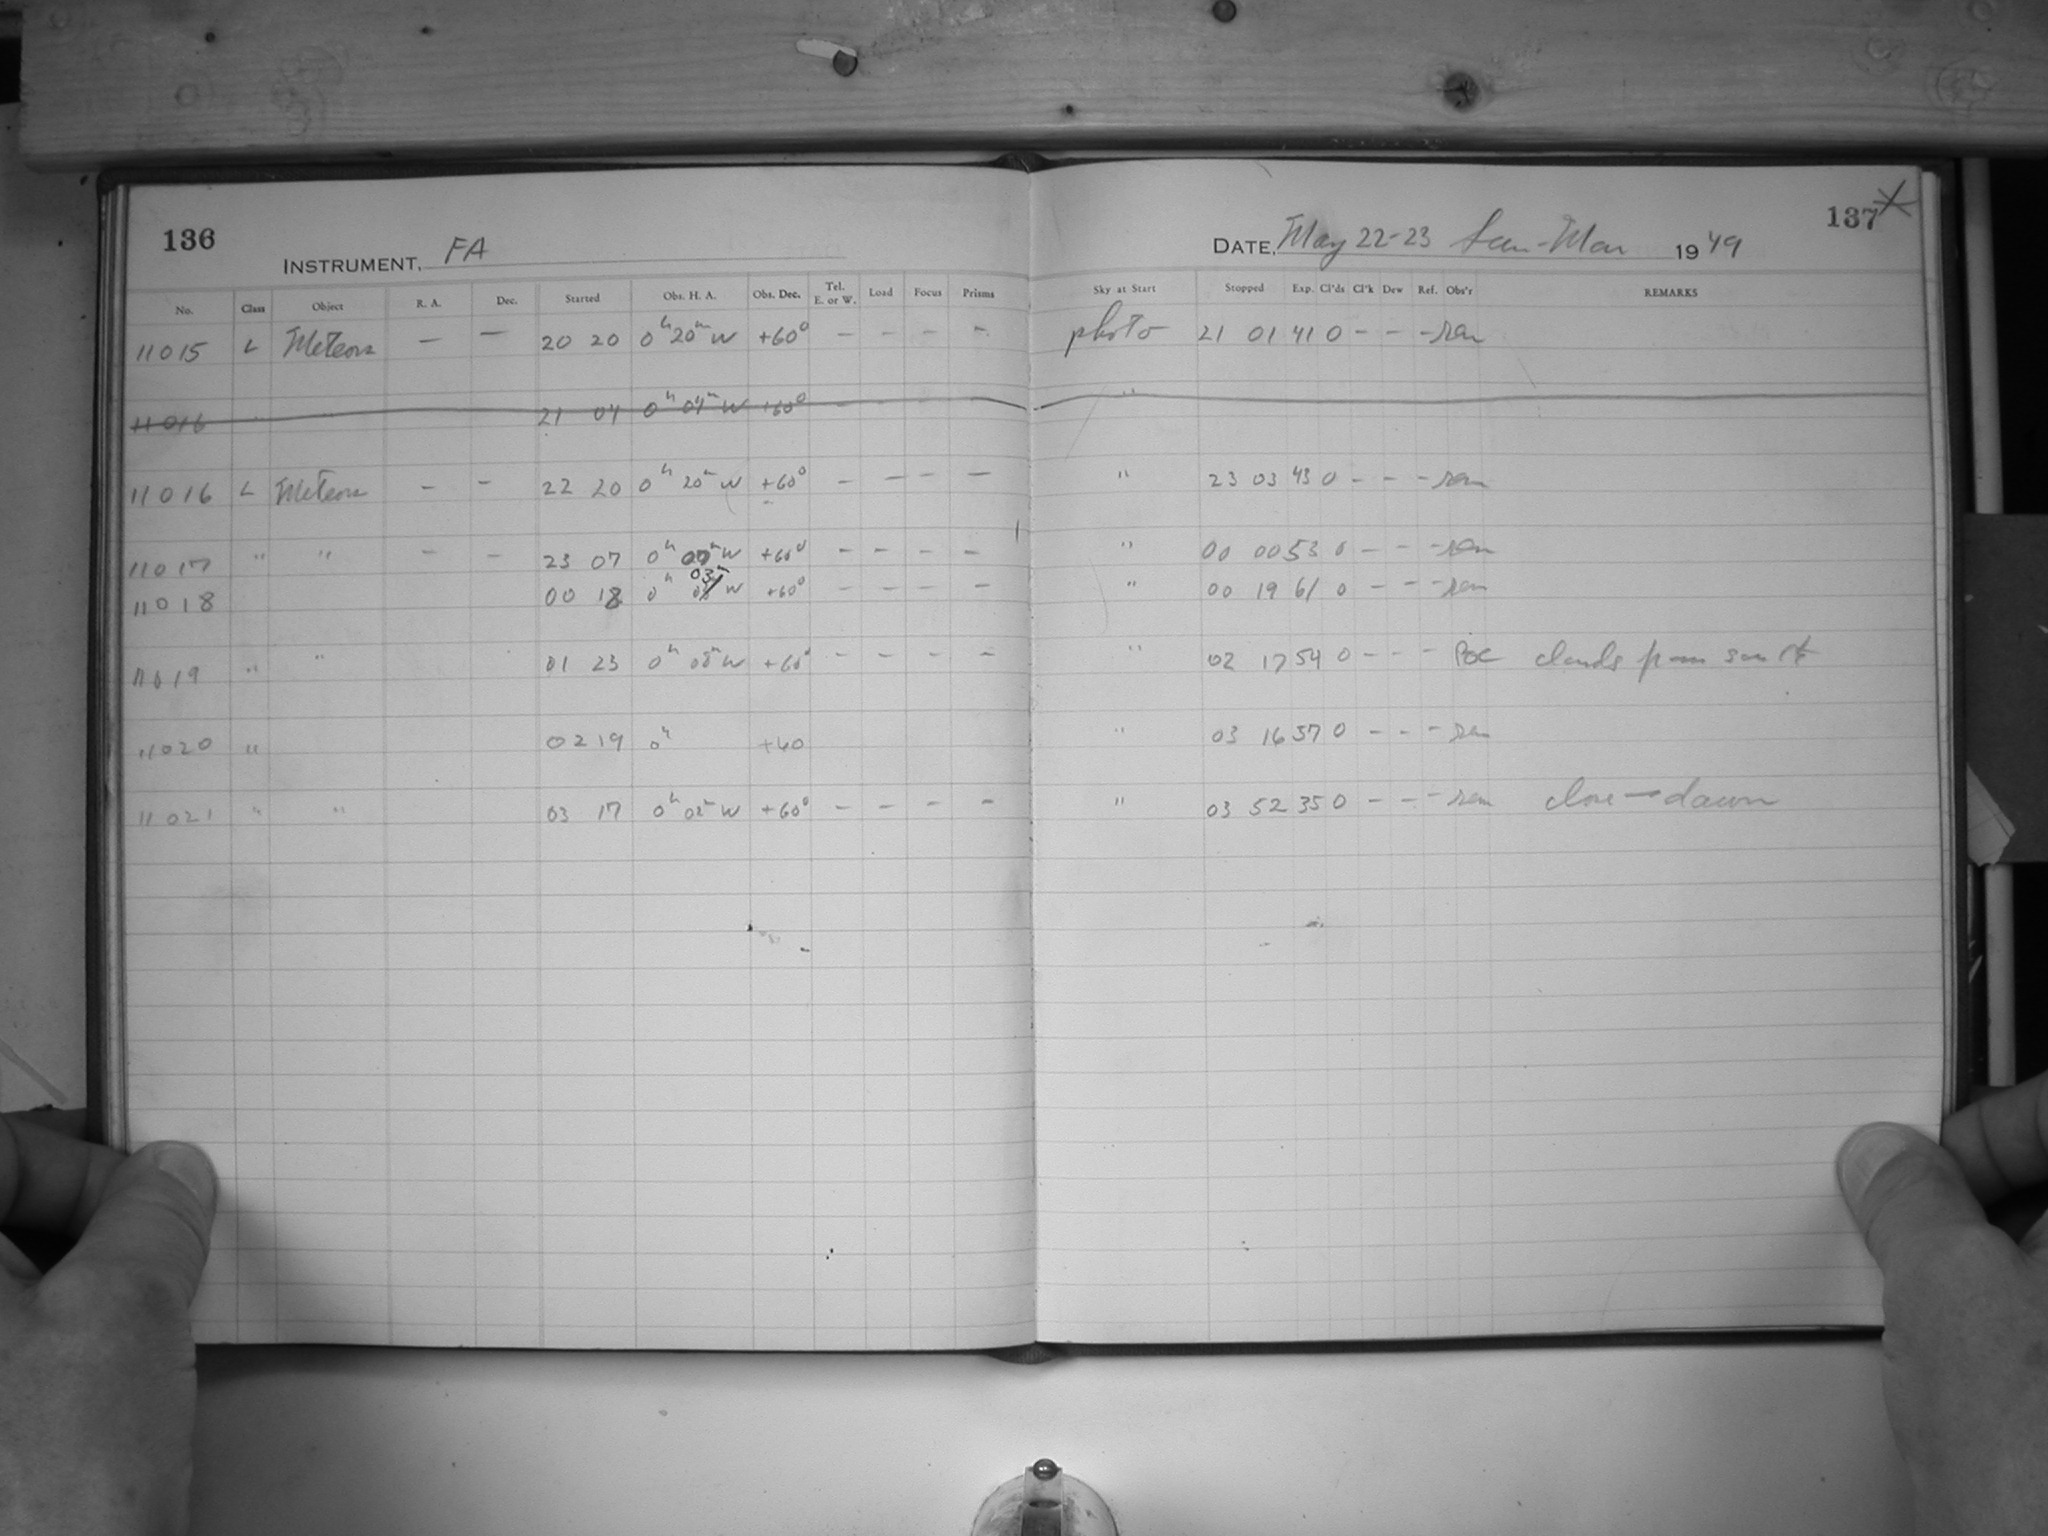 136
137
INSTRUMENT, FA
DATE, May 22-23 Sun-Mon 1949
No. Class Object R. A. Dec. Started Obs. H. A. Obs. Dec. Tel. E. or W. Load Focus Prisms Sky at Start Stopped Exp. Cl'ds Cl'k Dew Ref. Obs'r REMARKS
11015 L Meteors — — 20 20 0h 20m W +60° – – – – photo 21 01 41 0 – – – ren
11016 21 04 0h 04m W +60° – "
11016 L Meteors – – 22 20 0h 20m W +60° – – – – " 23 03 43 0 – – – ren
11017 " " – – 23 07 0h W +60° – – – – " 00 00 53 0 – – – ren
11018 00 18 0h 03m W +60° – – – – " 00 19 61 0 – – – ren
11019 " " 01 23 0h 08m W +60° – – – – " 02 17 54 0 – – – clouds from
11020 " 02 19 0h +60 " 03 16 57 0 – – – ren
11021 " " 03 17 0h 02m W +60° – – – – " 03 52 35 0 – – – ren close — dawn